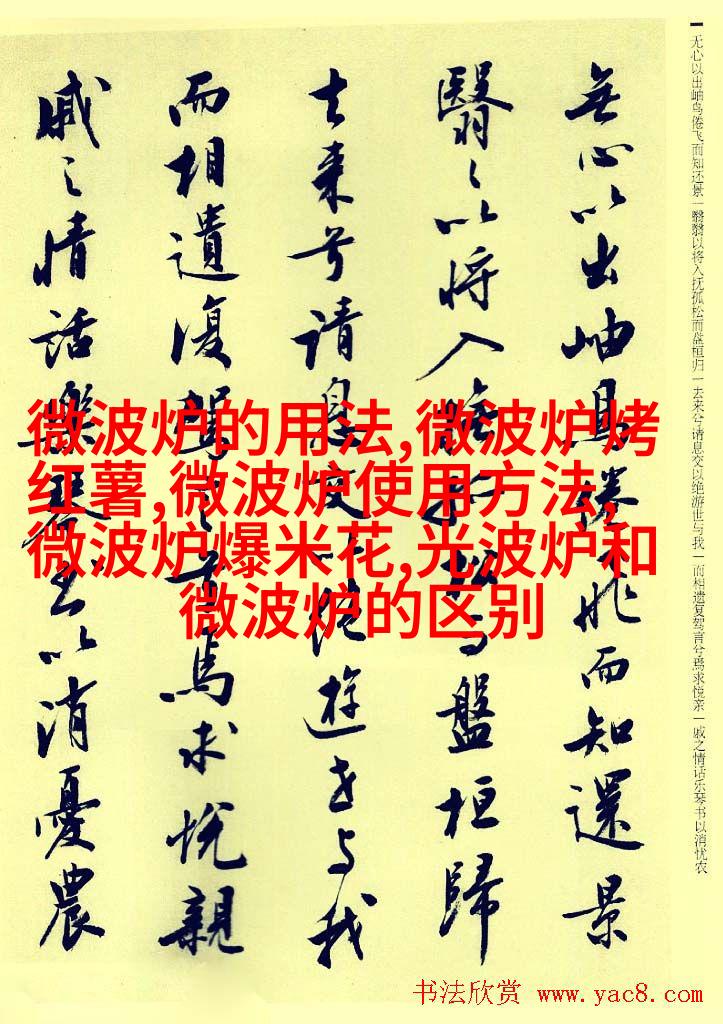 无心以出岫鸟倦飞而知还景|翳翳以将入抚孤松而盘桓归|去来兮请息交以绝游世与我|而相遗复驾言兮焉求悦亲|戚之情话乐琴书以消忧农
無心以出岫鳥倦飛而知還景
翳翳以将入撫孤松而盤桓歸
去来兮请息交以绝遊世与我
而相遺復駕言兮焉求悦親
戚之情話樂琴書以消憂農
微波炉的用法,微波炉烤
红薯,微波炉使用方法,
微波炉爆米花,光波炉和
微波炉的区别
书法欣赏 www.yac8.com